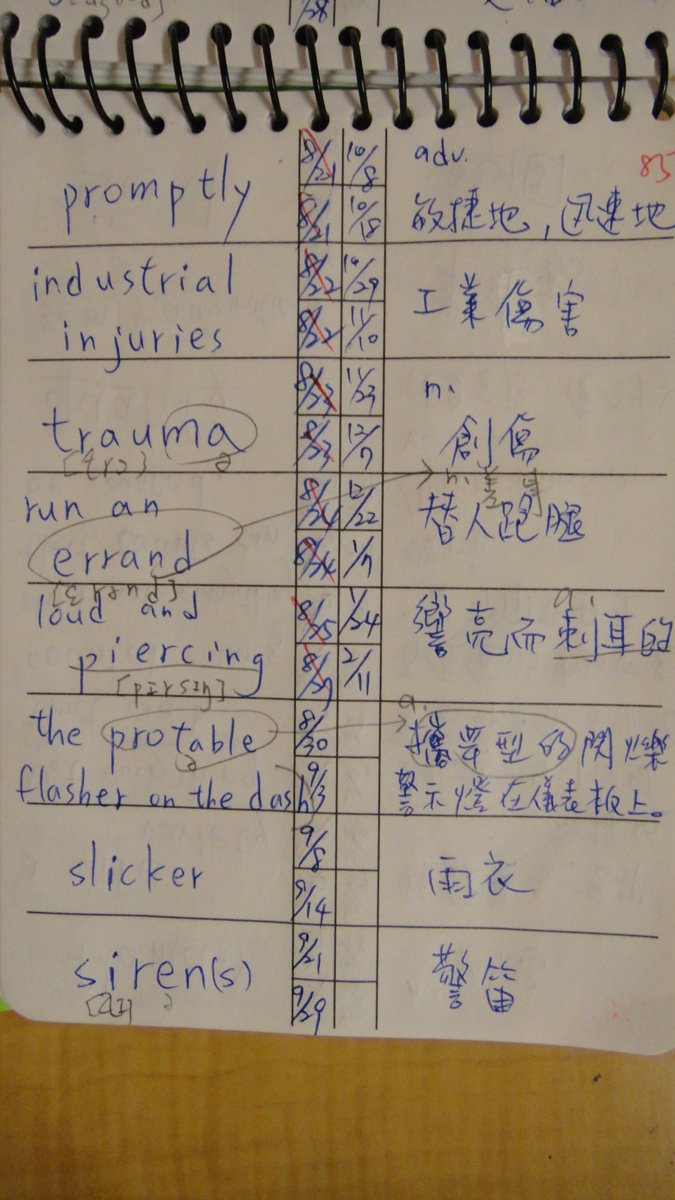 promptly
8/21 10/8
8/21 10/18
adv.
85
敏捷地,迅速地
industrial
injuries
8/22 10/29
8/22 11/10
工業傷害
trauma
8/23 11/23
8/23 12/7
n.
創傷
run an
errand
8/24 12/22
8/24 1/7
n. 差事
替人跑腿
loud and
piercing
8/25 1/24
8/29 2/11
a.
響亮而刺耳的
the protable
flasher on the dash
8/30
9/3
a.
攜帶型的閃爍
警示燈在儀表板上。
slicker
9/8
9/14
雨衣
siren(s)
9/21
9/29
警笛